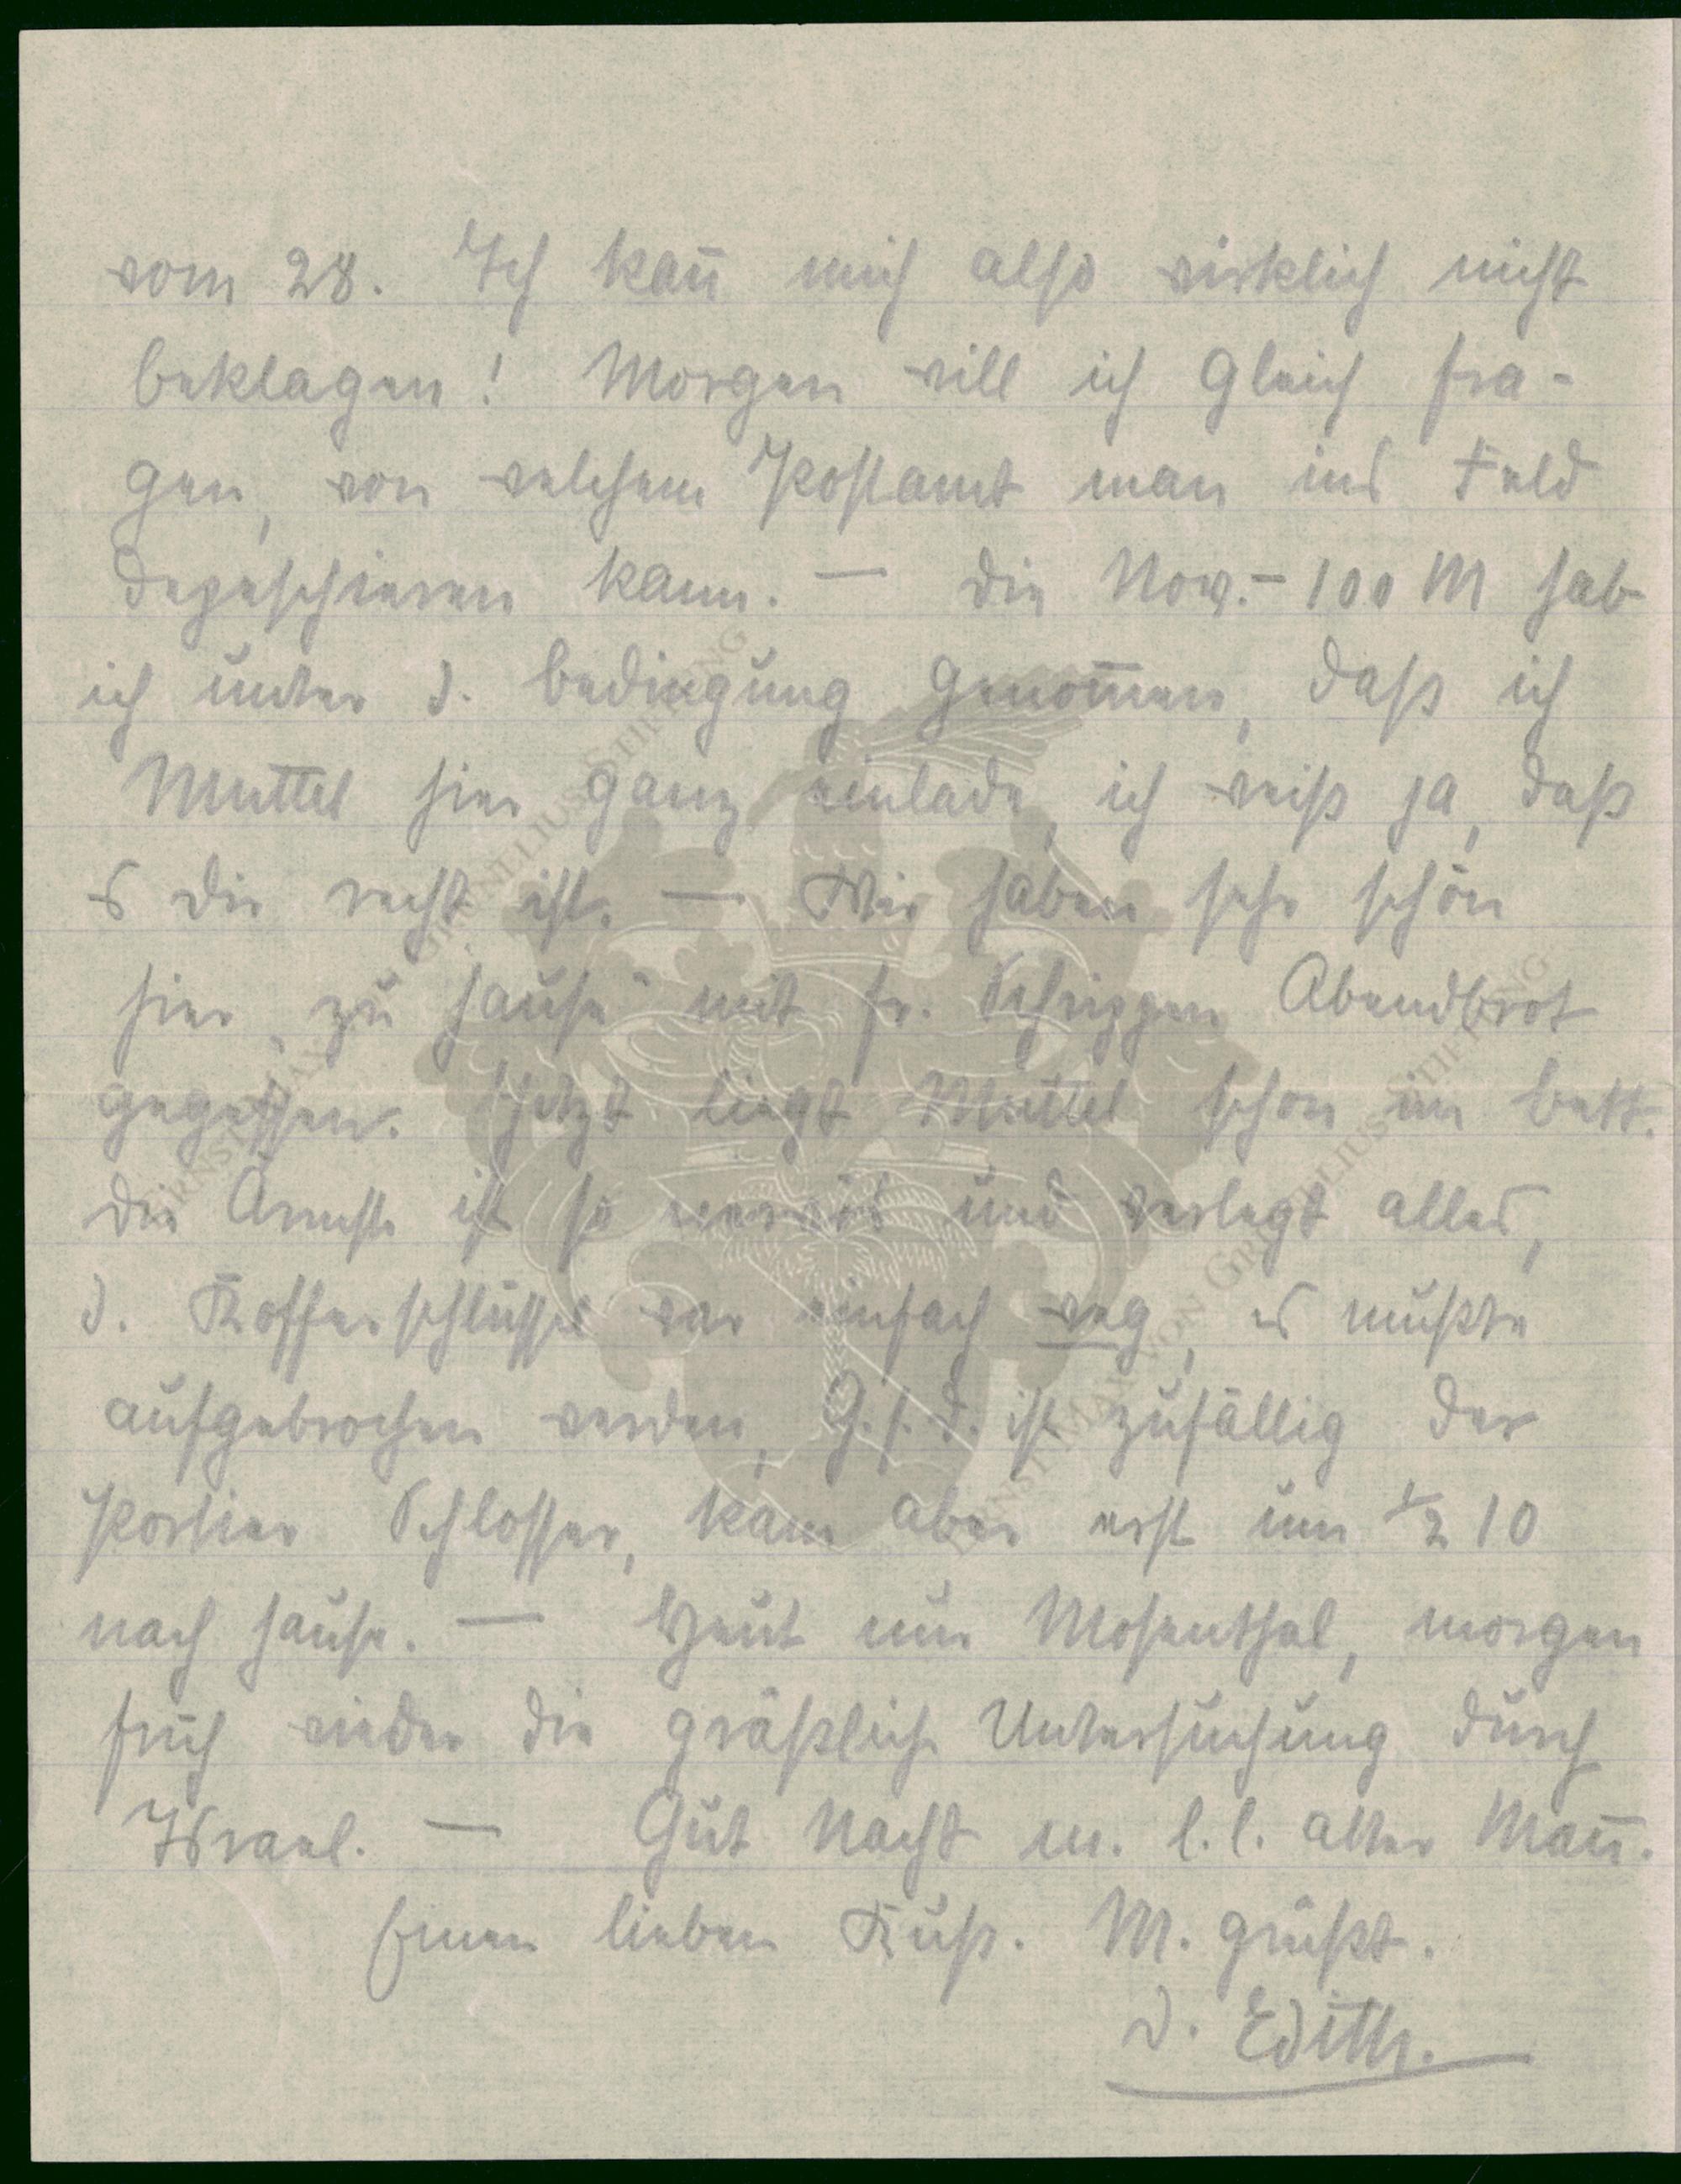 vom 28. Ich kañ mich also wirklich nicht
beklagen! Morgen will ich gleich fra-
gen, von welchem Postamt man ins Feld
depeschieren kann. — Die Nov.- 100 M hab
ich unter d. Bedingung genom̄en, daß ich
Muttel hier ganz einlade, ich weiß ja, daß
es dir recht ist. — Wir haben sehr schön
hier „zu Hause" mit fr. Schrippen Abendbrot
gegessen. Jetzt liegt Muttel schon im Bett.
Die Ärmste ist so nervös und verlegt alles,
d. Kofferschlüssel war einfach weg, es mußte
aufgebrochen werden, G. s. D. ist zufällig der
Portier Schlosser, kam aber erst um ½ 10
nach Hause. — Heut nun Mosenthal, morgen
früh wieder die gräßliche Untersuchung durch
Israel. — Gut Nacht m. l. l. alter Mañ.
Einen lieben Kuß. M. grüßt.
D. Edith.
ERNST MAX VON GRUNELIUS-STIFTUNG
ERNST MAX VON GRUNELIUS-STIFTUNG